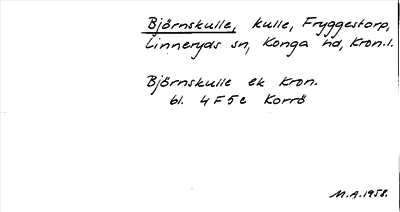 Björnskulle, kulle, Fryggestorp,
Linneryds sn, Konga hd, Kron.l.
Björnskulle ek Kron.
bl. 4F5e Korrö
M.A. 1958.